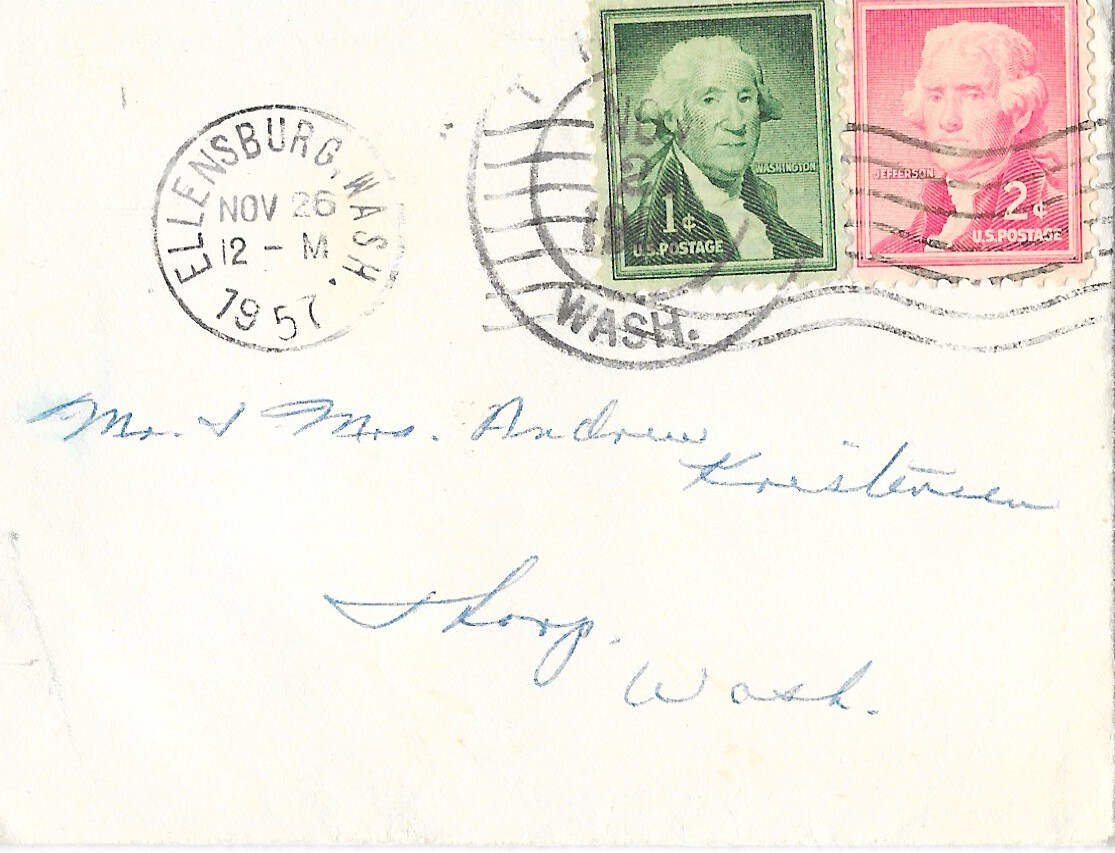 ELLENSBURG, WASH.
NOV 26
12 – M
1957
NOV
WASH.
WASHINGTON
1¢
U.S. POSTAGE
JEFFERSON
2¢
U.S. POSTAGE
Mr. & Mrs. Andrew
Kristensen
Thorp.
Wash.